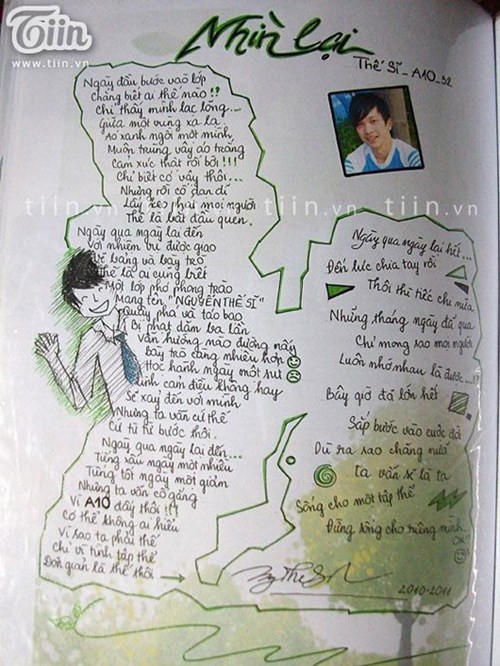 Tiin
www.tiin.vn
Nhìn lại
Thế Sĩ _ A10 _ 52
Ngày đầu bước vào lớp
Chẳng biết ai thế nào !?
Chỉ thấy mình lạc lõng...
Giữa một vùng xa lạ
Áo xanh ngồi một mình
Muôn trùng vây áo trắng
Cảm xúc thật rối bời !!!
Chỉ biết có vậy thôi...
Nhưng rồi cố dan dí
Lấy kẹo phải mọi người
Thế là bắt đầu quen.
Ngày qua ngày lại đến
Với nhiệm vụ được giao
Vẽ bảng và bày trò
Thế là ai cũng biết
Một lớp phó phong trào
Mang tên "NGUYỄN THẾ SĨ"
Quậy phá và táo bạo
Bị phạt dăm ba lần
Vẫn hướng nào đường nấy
Bày trò càng nhiều hơn
Học hành ngày một sụt
Linh cảm điều không hay
Sẽ xảy đến với mình
Nhưng ta vẫn cứ thế
Cứ từ từ bước thôi.
Ngày qua ngày lại đến...
Từng xấu ngày một nhiều
Tiếng tốt ngày một giảm
Nhưng ta vẫn cố gắng
Vì A10 đấy thôi !!
Có thể không ai hiểu
Vì sao ta phải thế
Chỉ vì tính tập thể
Đơn giản là thế thôi
Ngày qua ngày lại hết...
Đến lúc chia tay rồi
Thôi thì tiếc chi nữa
Những tháng ngày đã qua
Chỉ mong sao mọi người
Luôn nhớ nhau là được...!?
Bây giờ đã lớn hết
Sắp bước vào cuộc đời
Dù ra sao chăng nữa
Ta vẫn sẽ là ta
Sống cho một tập thể
Đừng sống cho riêng mình...
OK!!
2010-2011
tiin.vn tiin.vn tiin.vn tiin.vn